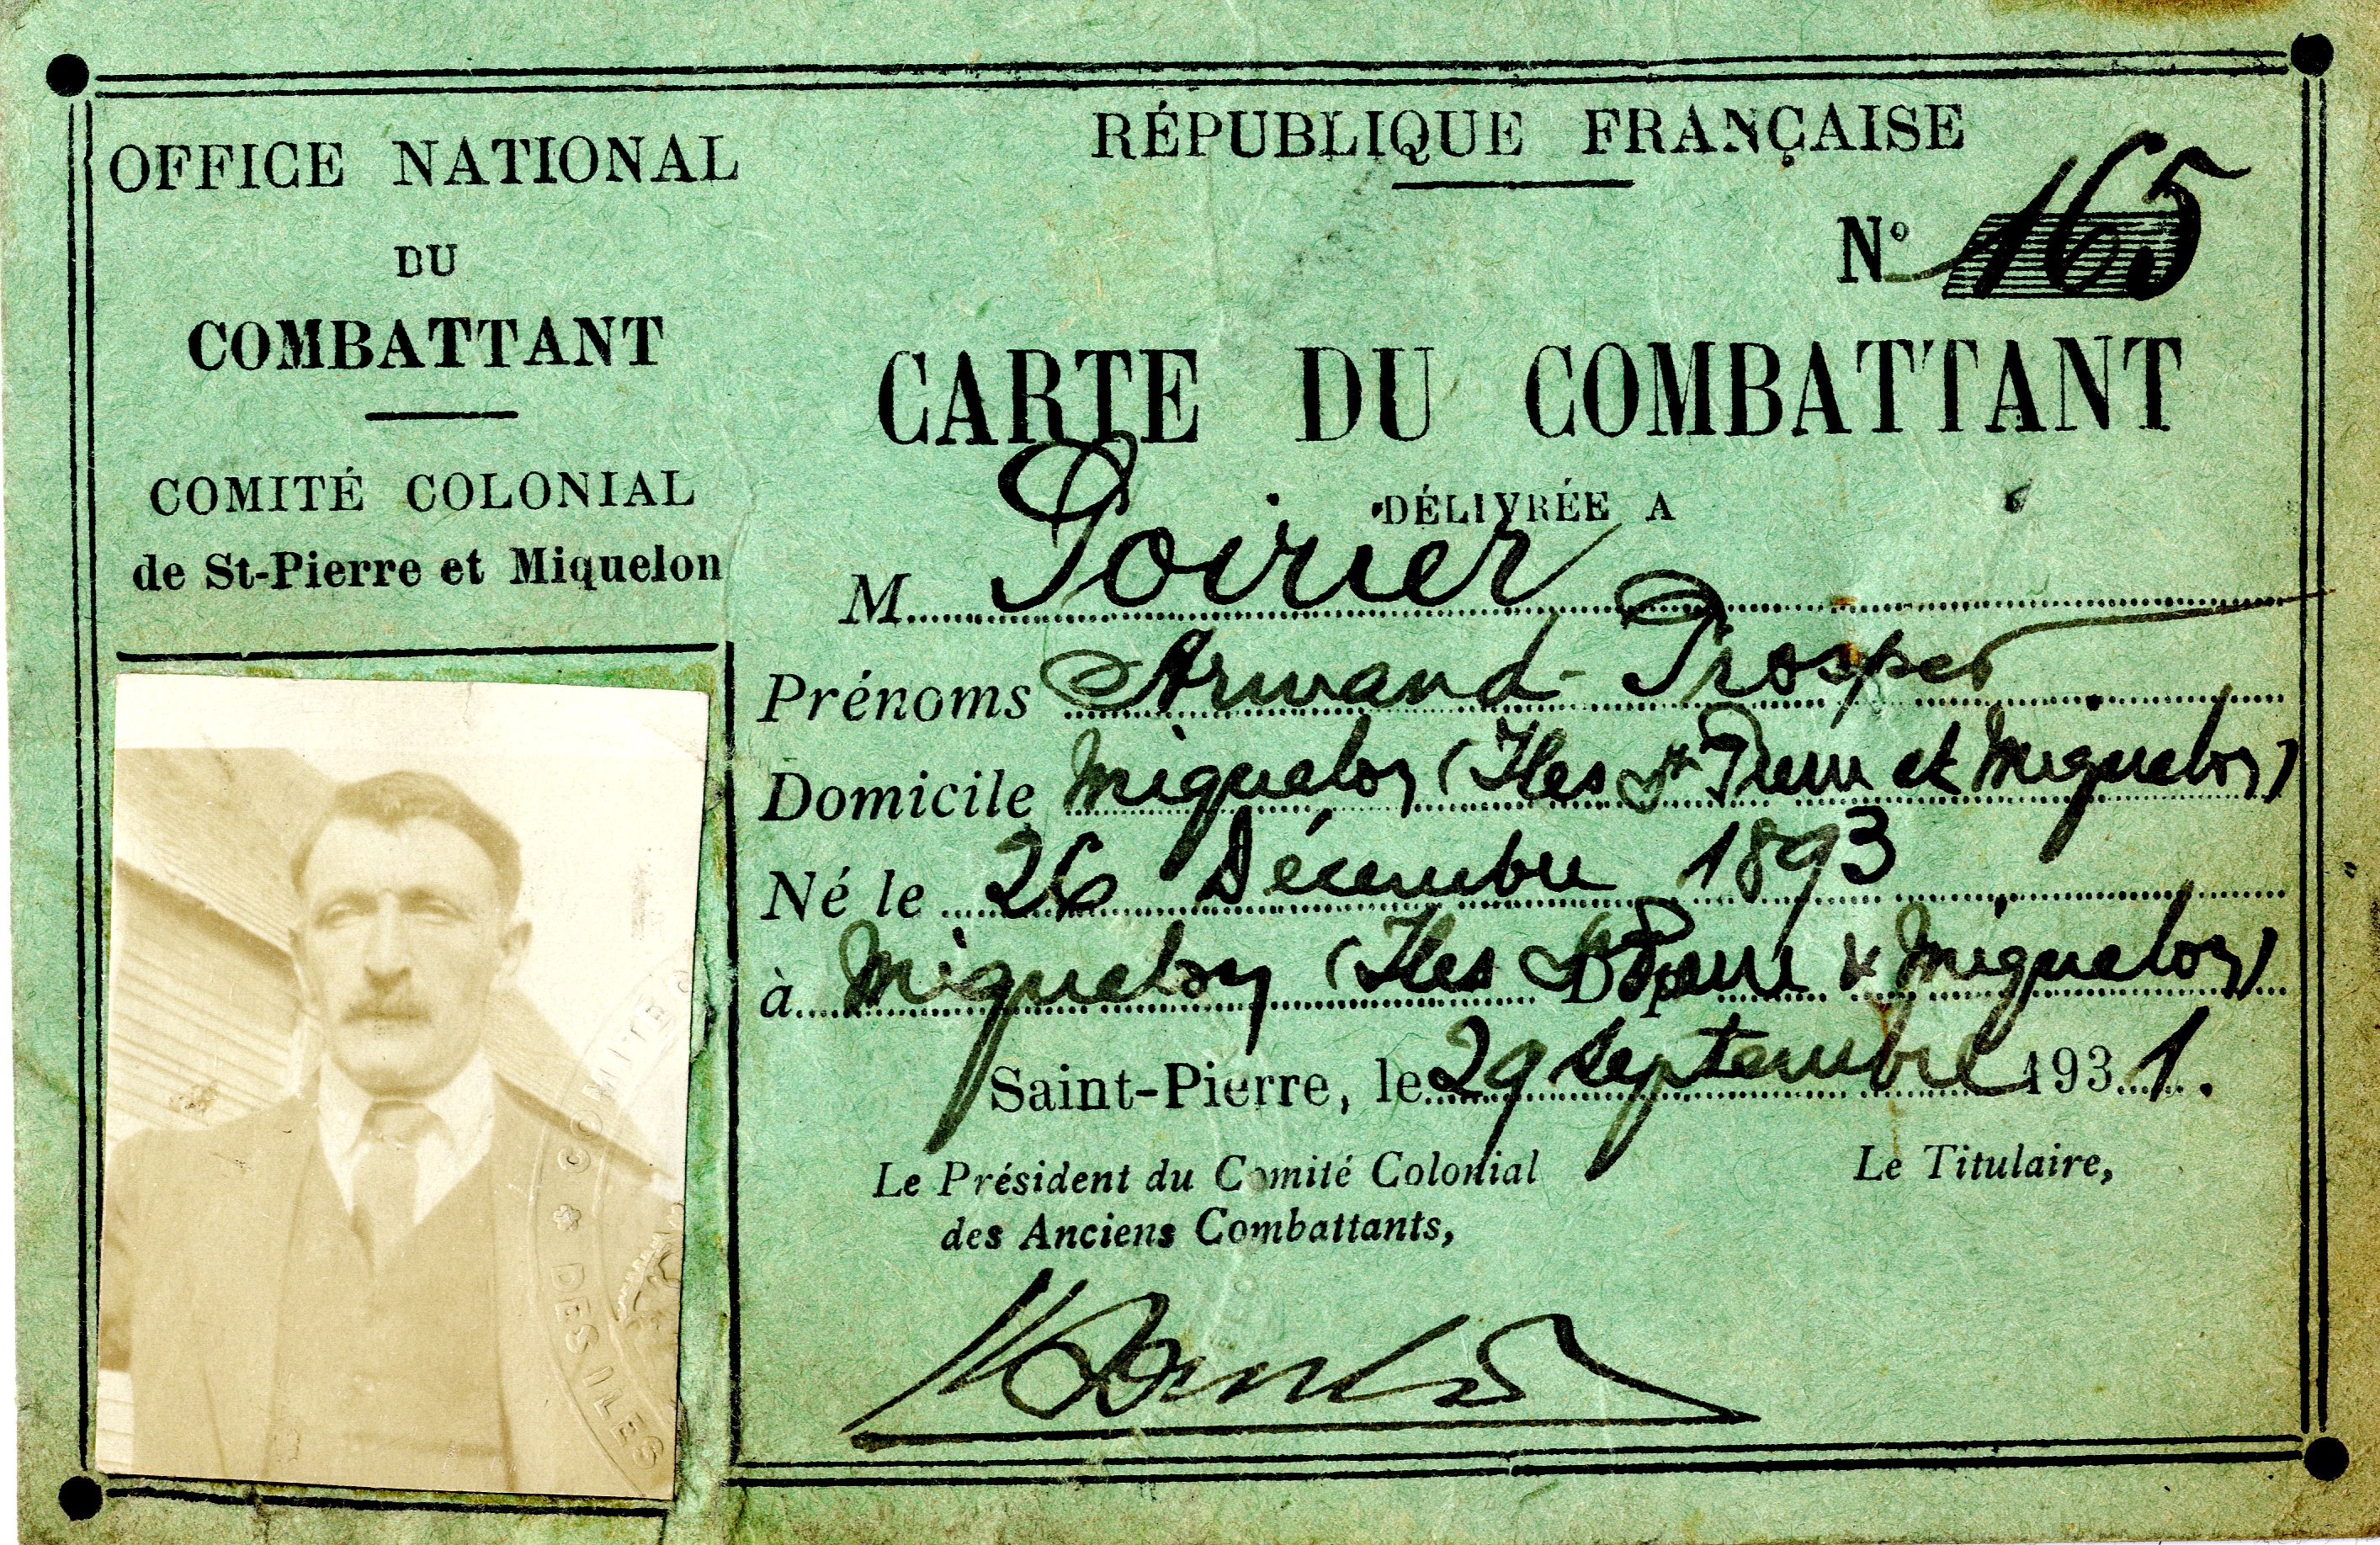 OFFICE NATIONAL
DU
COMBATTANT
COMITÉ COLONIAL
de St-Pierre et Miquelon
RÉPUBLIQUE FRANÇAISE
N° 165
CARTE DU COMBATTANT
DÉLIVRÉE A
M. Poirier
Prénoms Armand-Prosper
Domicile Miquelon (Iles St Pierre et Miquelon)
Né le 26 Décembre 1893
à Miquelon (Iles St Pierre & Miquelon)
Saint-Pierre, le 29 septembre 1931.
Le Président du Comité Colonial
des Anciens Combattants,
Le Titulaire,
COMITE
DES ILES